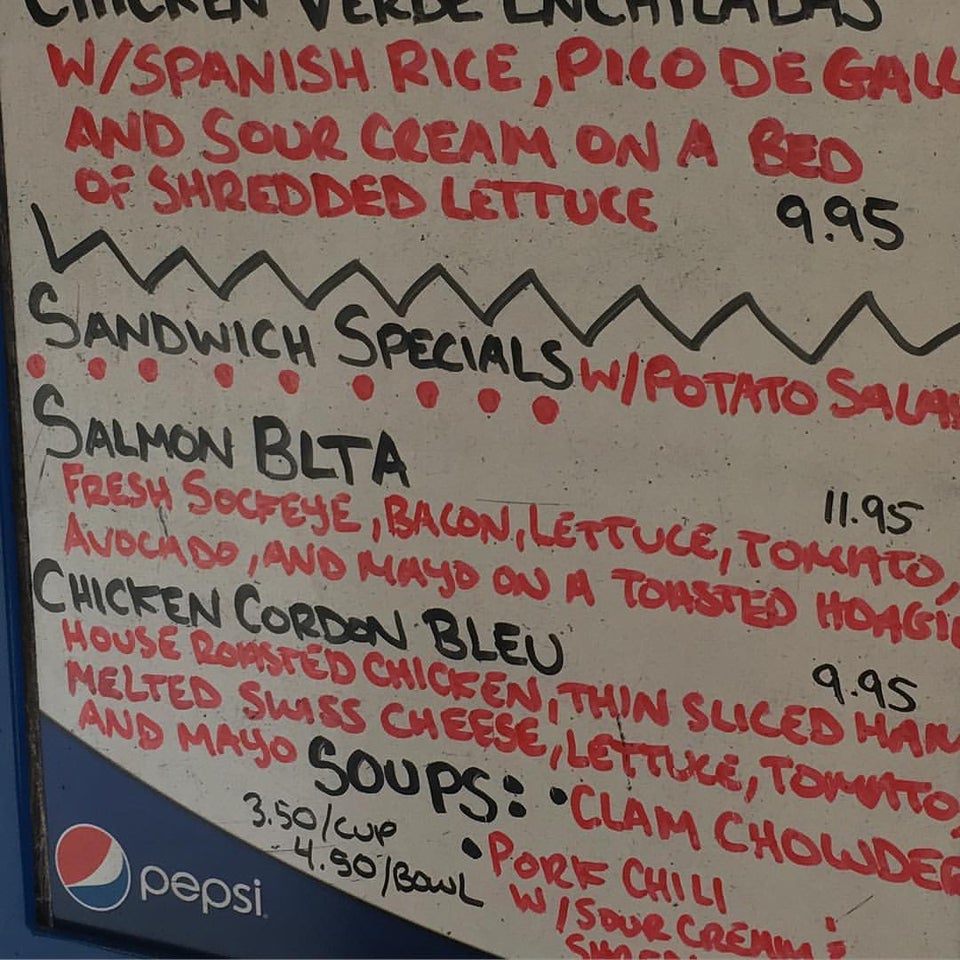 CHICKEN VERDE ENCHILADAS
W/SPANISH RICE, PICO DE GALL
AND SOUR CREAM ON A BED
OF SHREDDED LETTUCE 9.95
SANDWICH SPECIALS W/POTATO SALA
SALMON BLTA 11.95
FRESH SOCKEYE, BACON, LETTUCE, TOMATO,
AVOCADO, AND MAYO ON A TOASTED HOAGI
CHICKEN CORDON BLEU 9.95
HOUSE ROASTED CHICKEN, THIN SLICED HAM
MELTED SWISS CHEESE, LETTUCE, TOMATO,
AND MAYO
SOUPS: • CLAM CHOWDER
3.50/CUP
• PORK CHILI
4.50/BOWL
W/SOUR CREAM &
pepsi